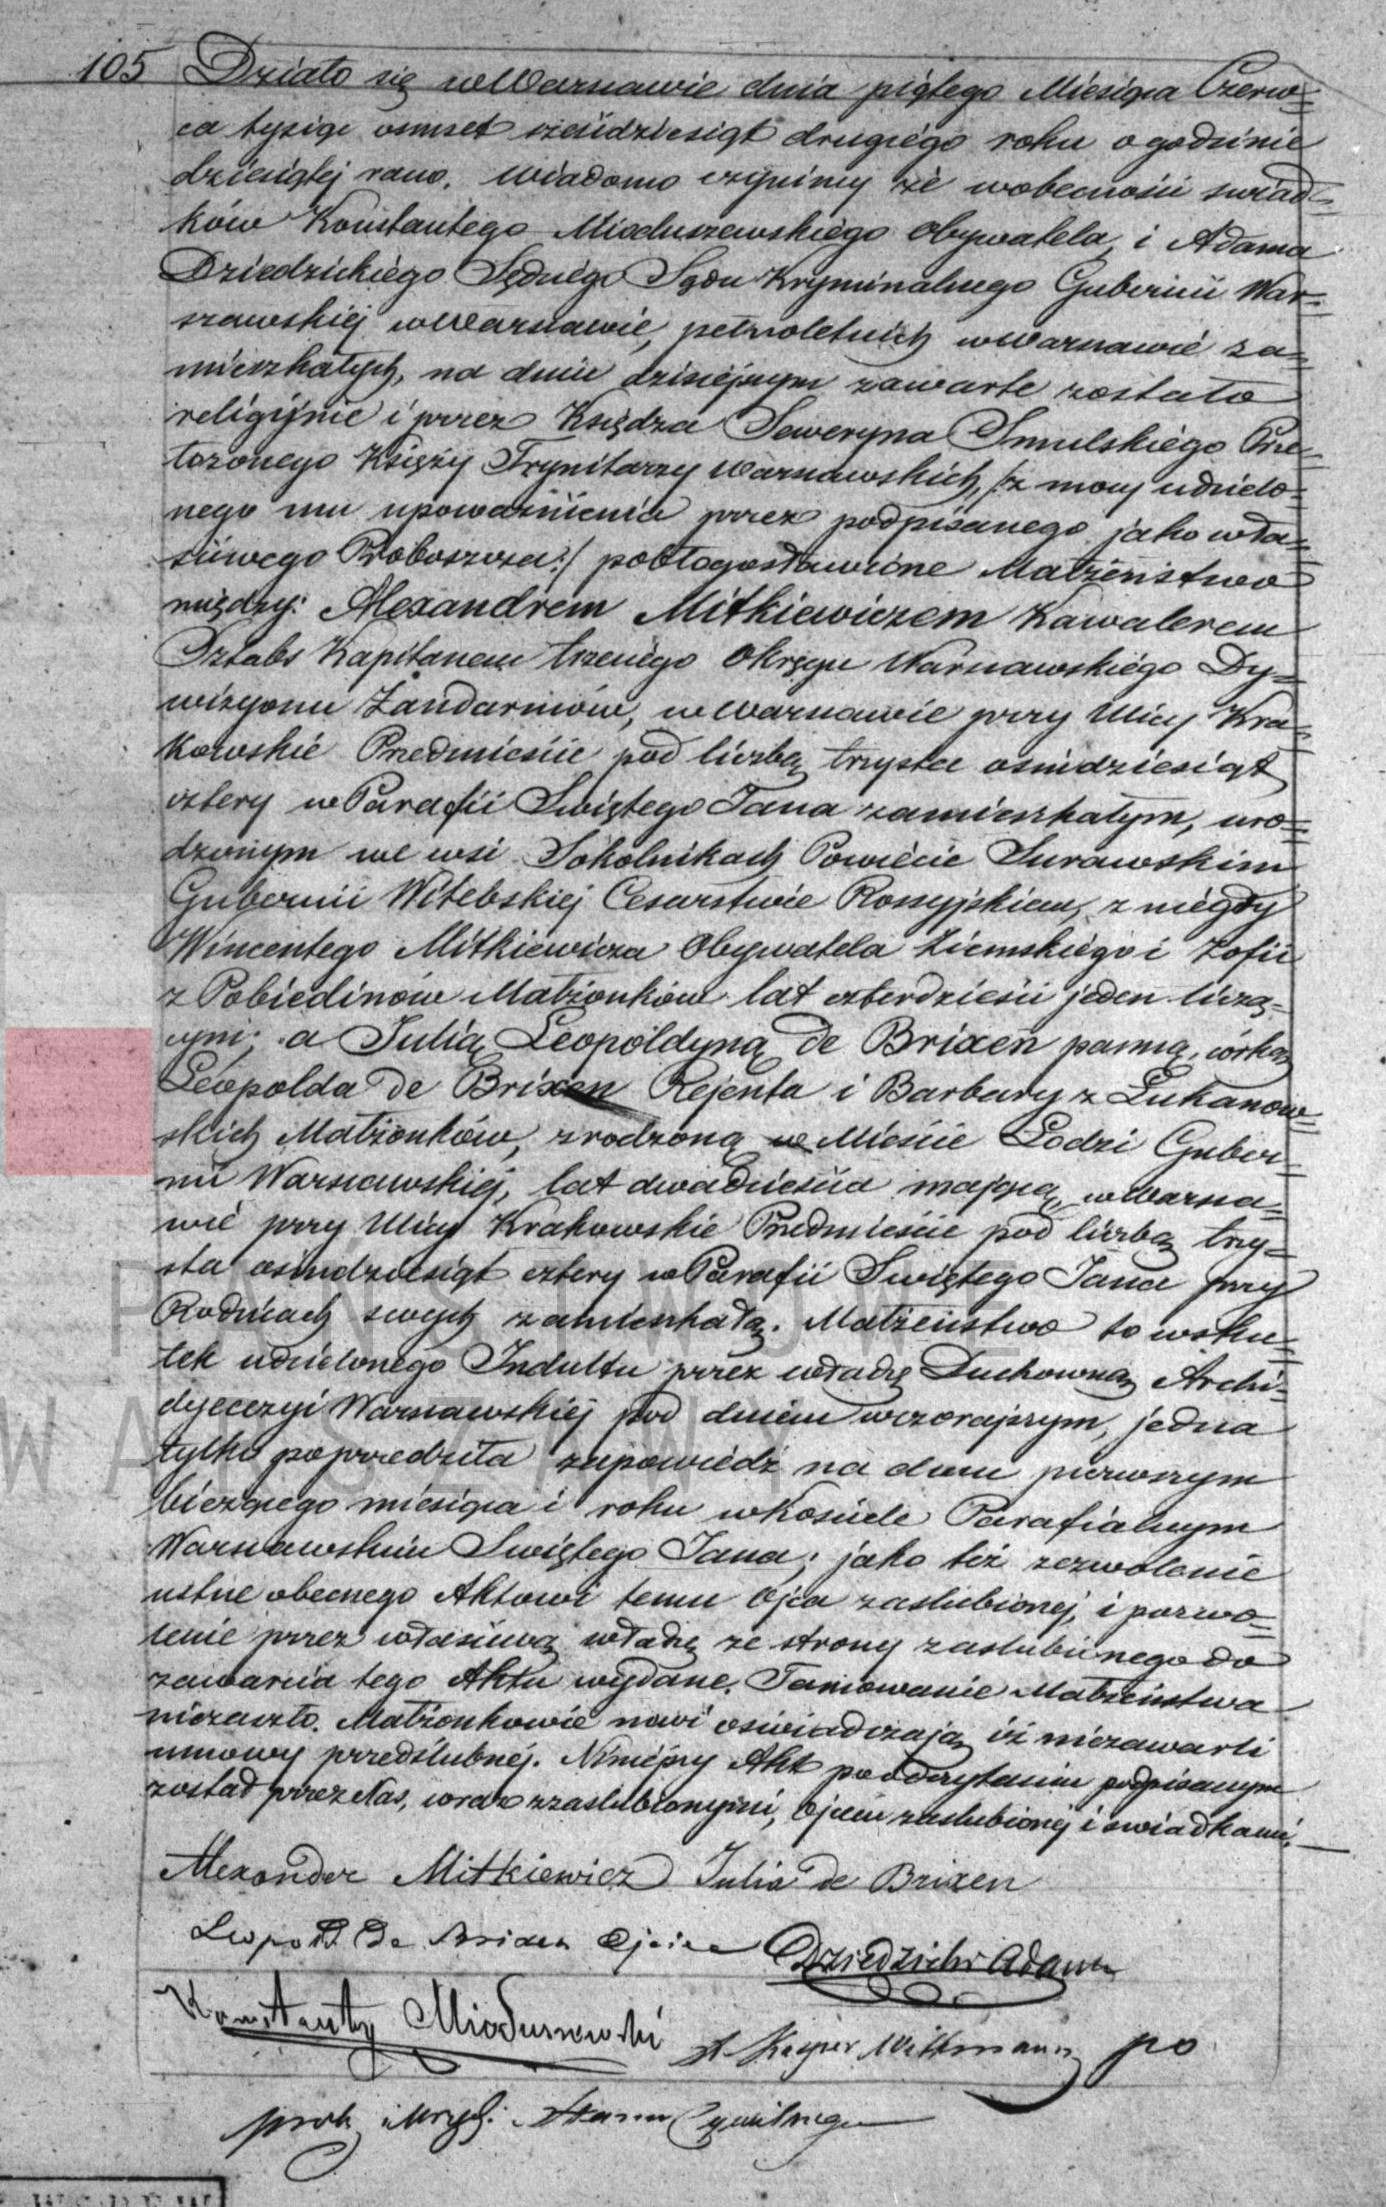 105 Działo się w Warszawie dnia piątego Miesiąca Czerw=
ca tysiąc osmset sześdziesiąt drugiego roku o godzinie
dziesiątej rano. Wiadomo czynimy że wobecności świad=
ków Konstantego Mioduszewskiego Obywatela, i Adama
Dziedzickiego Sędziego Sądu Kryminalnego Gubernii War=
szawskiej w Warszawie, pełnoletnich w Warszawie za=
mieszkałych, na dniu dzisiejszym zawarte zostało
religijnie i przez Księdza Seweryna Smulskiego Prze=
łożonego Księży Trynitarzy Warszawskich, /:z mocy udzielo=
nego mu upoważnienia przez podpisanego jako wła=
ściwego Proboszcza:/ pobłogosławione Małżeństwo
między: Alexandrem Mitkiewiczem Kawalerem
Sztabs Kapitanem trzeciego Okręgu Warszawskiego Dy=
wizyonu Żandarmów, w Warszawie przy Ulicy Kra=
kowskie Przedmieście pod liczbą trzysta ośmdziesiąt
cztery w Parafii Świętego Jana zamieszkałym, uro=
dzonym we wsi Sokolnikach Powiecie Surawskim
Gubernii Witebskiej Cesarstwie Rossyjskiem, z niegdy
Wincentego Mitkiewicza Obywatela Ziemskiego i Zofii
z Pobiedinów Małżonków lat czterdzieści jeden liczą=
cym; a Julią Leopoldyną de Brixen panną, córką
Leopolda de Brixen Rejenta i Barbary z Łukanow=
skich Małżonków, zrodzoną we Mieście Łodzi Guber=
nii Warszawskiej, lat dwadzieścia mającą, w Warsza=
wie przy Ulicy Krakowskie Przedmieście pod liczbą trzy=
sta ośmdziesiąt cztery w Parafii Świętego Jana przy
Rodzicach swych zamieszkałą. Małżeństwo to wsku=
tek udzielonego Indultu przez władzę Duchowną Archi=
dyecezyi Warszawskiej pod dniem wczorajszym, jedna
tylko poprzedziła zapowiedź na dniu pierwszym
bieżącego miesiąca i roku w Kościele Parafialnym
Warszawskim Świętego Jana; jako też zezwolenie
ustne obecnego Aktowi temu Ojca zaślubionej, i pozwo=
lenie przez właściwą władzę ze strony zaślubionego do
zawarcia tego Aktu wydane. Tamowanie Małżeństwa
niezaszło. Małżonkowie nowi oświadczają iż niezawarli
umowy przedślubnej. Niniejszy Akt po odczytaniu podpisanym
został przez Nas, wraz z zaślubionymi, Ojcem zaślubionej i świadkami.
Alexander Mitkiewicz Julia de Brixen
Leopold De Brixen Ojciec Dziedzicki Adam
Konstanty Mioduszewski X Kacper Wittmann po
prob. Stanu Cywilnego
PAŃSTWOWE
WARSZAWY